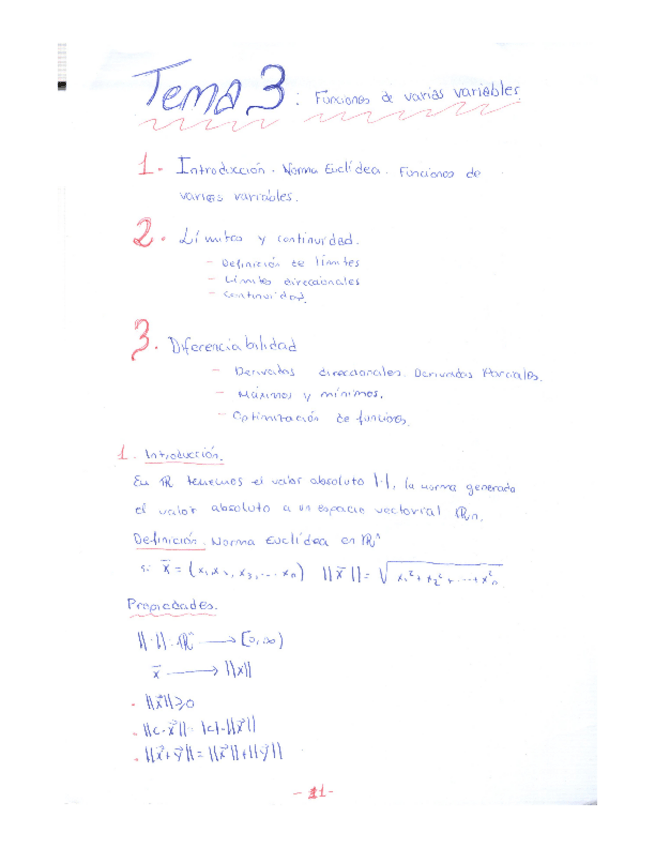 Tema 3: Funciones de varias variables.
1. Introducción. Norma Euclídea. Funciones de
varias variables.
2. Límites y continuidad.
- Definición de límites
- Límites direccionales
- Continuidad.
3. Diferenciabilidad
- Derivadas direccionales. Derivadas Parciales.
- Máximos y mínimos.
- Optimización de funciones.
1. Introducción.
En ℝ tenemos el valor absoluto |·|, la norma generada
el valor absoluto a un espacio vectorial ℝn.
Definición. Norma Euclídea en ℝⁿ
si x̄ = (x₁, x₂, x₃, ... xₙ) ||x̄|| = √x₁² + x₂² + ... + x²ₙ
Propiedades.
||·||: ℝⁿ → [0, ∞)
x̄ → ||x||
· ||x⃗|| ≥ 0
· ||c·x⃗|| = |c|·||x⃗||
· ||x⃗ + y⃗|| = ||x⃗|| + ||y⃗||
- 11 -